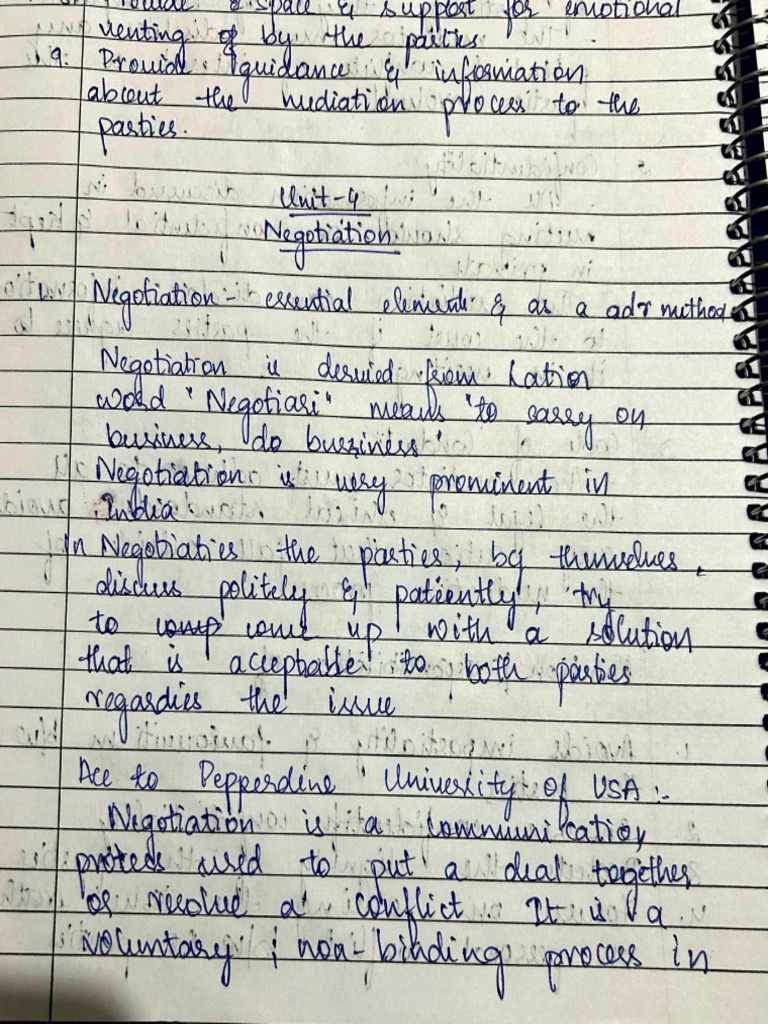 space & support for emotional
venting of by the parties.
9. Provide guidance & information
about the mediation process to the
parties.
Unit-4
Negotiation
1. Negotiation - essential elements & as a adr method
Negotiation is derived from Lation
word "Negotiari" means "to carry on
business, do bussiness'
Negotiation is very prominent in
India
In Negotiaties the parties, by themselves,
discuss politely & patiently, try
to comp come up with a solution
that is acceptable to both parties
regardies the issue
Acc to Pepperdine University of USA :-
Negotiation is a communication
process used to put a deal together
or resolve a conflict. It is a
voluntary & non-binding process in